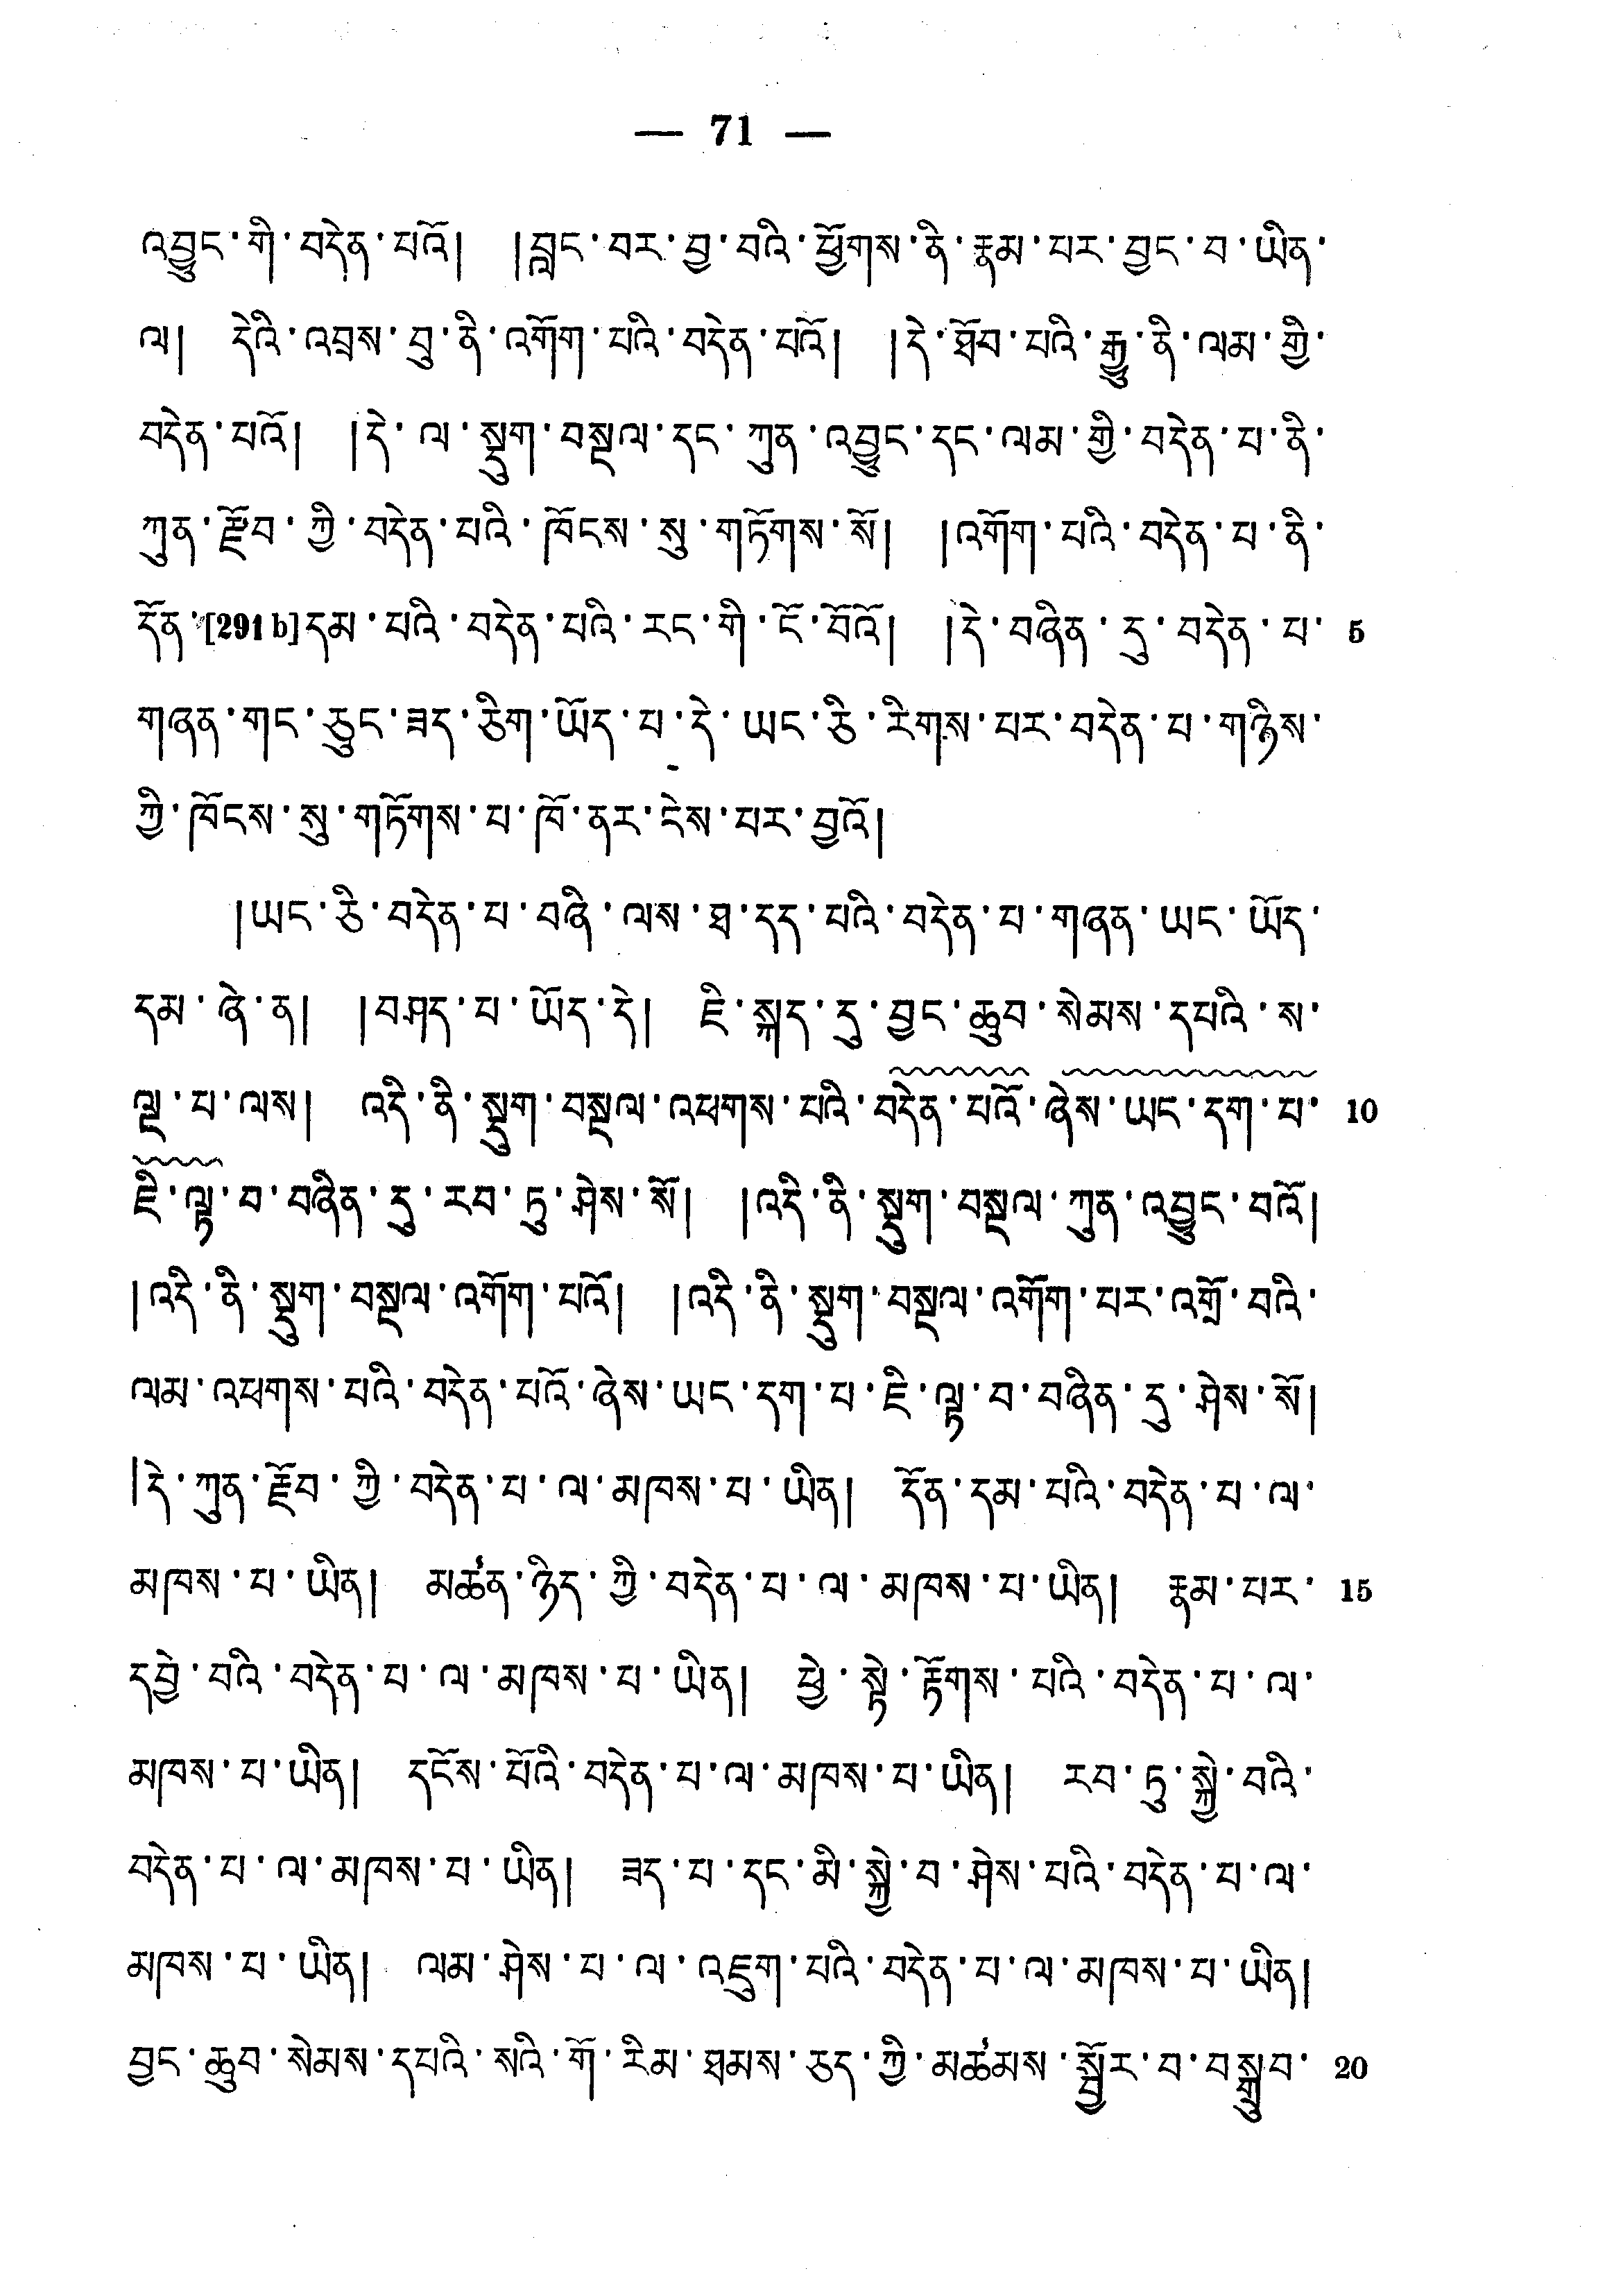 — 71 —
འབྱུང་གི་བདེན་པའོ། །བླང་བར་བྱ་བའི་ཕྱོགས་ནི་རྣམ་པར་བྱང་བ་ཡིན་
ལ། དེའི་འབྲས་བུ་ནི་འགོག་པའི་བདེན་པའོ། །དེ་ཐོབ་པའི་རྒྱུ་ནི་ལམ་གྱི་
བདེན་པའོ། །དེ་ལ་སྡུག་བསྔལ་དང་ཀུན་འབྱུང་དང་ལམ་གྱི་བདེན་པ་ནི་
ཀུན་རྫོབ་ཀྱི་བདེན་པའི་ཁོངས་སུ་གཏོགས་སོ། །འགོག་པའི་བདེན་པ་ནི་
དོན་[291 b]དམ་པའི་བདེན་པའི་རང་གི་ངོ་བོའོ། །དེ་བཞིན་དུ་བདེན་པ་ 5
གཞན་གང་ཅུང་ཟད་ཅིག་ཡོད་པ་དེ་ཡང་ཅི་རིགས་པར་བདེན་པ་གཉིས་
ཀྱི་ཁོངས་སུ་གཏོགས་པ་ཁོ་ནར་ངེས་པར་བྱའོ།
།ཡང་ཅི་བདེན་པ་བཞི་ལས་ཐ་དད་པའི་བདེན་པ་གཞན་ཡང་ཡོད་
དམ་ཞེ་ན། །བཤད་པ་ཡོད་དེ། ཇི་སྐད་དུ་བྱང་ཆུབ་སེམས་དཔའི་ས་
ལྔ་པ་ལས། འདི་ནི་སྡུག་བསྔལ་འཕགས་པའི་བདེན་པའོ་ཞེས་ཡང་དག་པ་ 10
ཇི་ལྟ་བ་བཞིན་དུ་རབ་ཏུ་ཤེས་སོ། །འདི་ནི་སྡུག་བསྔལ་ཀུན་འབྱུང་བའོ།
།འདི་ནི་སྡུག་བསྔལ་འགོག་པའོ། །འདི་ནི་སྡུག་བསྔལ་འགོག་པར་འགྲོ་བའི་
ལམ་འཕགས་པའི་བདེན་པའོ་ཞེས་ཡང་དག་པ་ཇི་ལྟ་བ་བཞིན་དུ་ཤེས་སོ།
།དེ་ཀུན་རྫོབ་ཀྱི་བདེན་པ་ལ་མཁས་པ་ཡིན། དོན་དམ་པའི་བདེན་པ་ལ་
མཁས་པ་ཡིན། མཚན་ཉིད་ཀྱི་བདེན་པ་ལ་མཁས་པ་ཡིན། རྣམ་པར་ 15
དབྱེ་བའི་བདེན་པ་ལ་མཁས་པ་ཡིན། ཕྱེ་སྟེ་རྟོགས་པའི་བདེན་པ་ལ་
མཁས་པ་ཡིན། དངོས་པོའི་བདེན་པ་ལ་མཁས་པ་ཡིན། རབ་ཏུ་སྐྱེ་བའི་
བདེན་པ་ལ་མཁས་པ་ཡིན། ཟད་པ་དང་མི་སྐྱེ་བ་ཤེས་པའི་བདེན་པ་ལ་
མཁས་པ་ཡིན། ལམ་ཤེས་པ་ལ་འཇུག་པའི་བདེན་པ་ལ་མཁས་པ་ཡིན།
བྱང་ཆུབ་སེམས་དཔའི་སའི་གོ་རིམ་ཐམས་ཅད་ཀྱི་མཚམས་སྦྱོར་བ་བསྒྲུབ་ 20